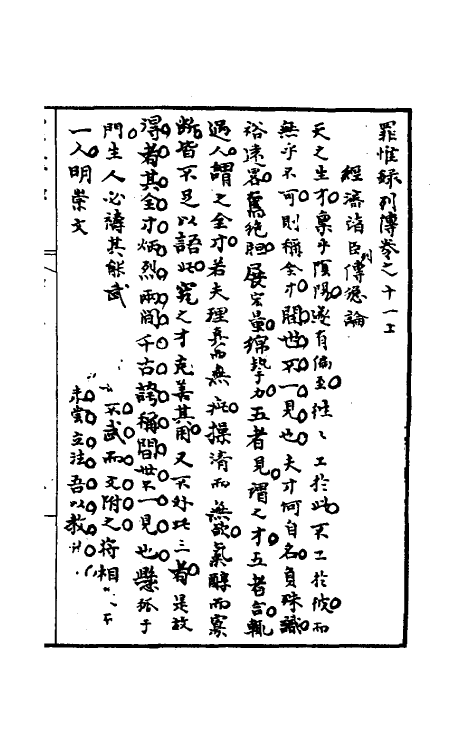 罪惟録列傳卷之十一上
經濟諸臣列傳總論
天之生才稟乎陰陽遂有偏至往々工於此不工於彼而
無乎不可則稱全才間世不一見也夫才何自名負殊識
裕遠畧驚絶胆展宏量綿摯力五者見謂之才五者言輒
過人謂之全才若夫理真而無疵操清而無欲氣醇而寡
斷皆不足以語此究之才克美其用又不外此三者是故
得若其全才炳烈兩間千古誇稱間世不一見也懸孤于
門生人必禱其能武 不武而文附之將相
一人明崇文 未嘗立法吾以教